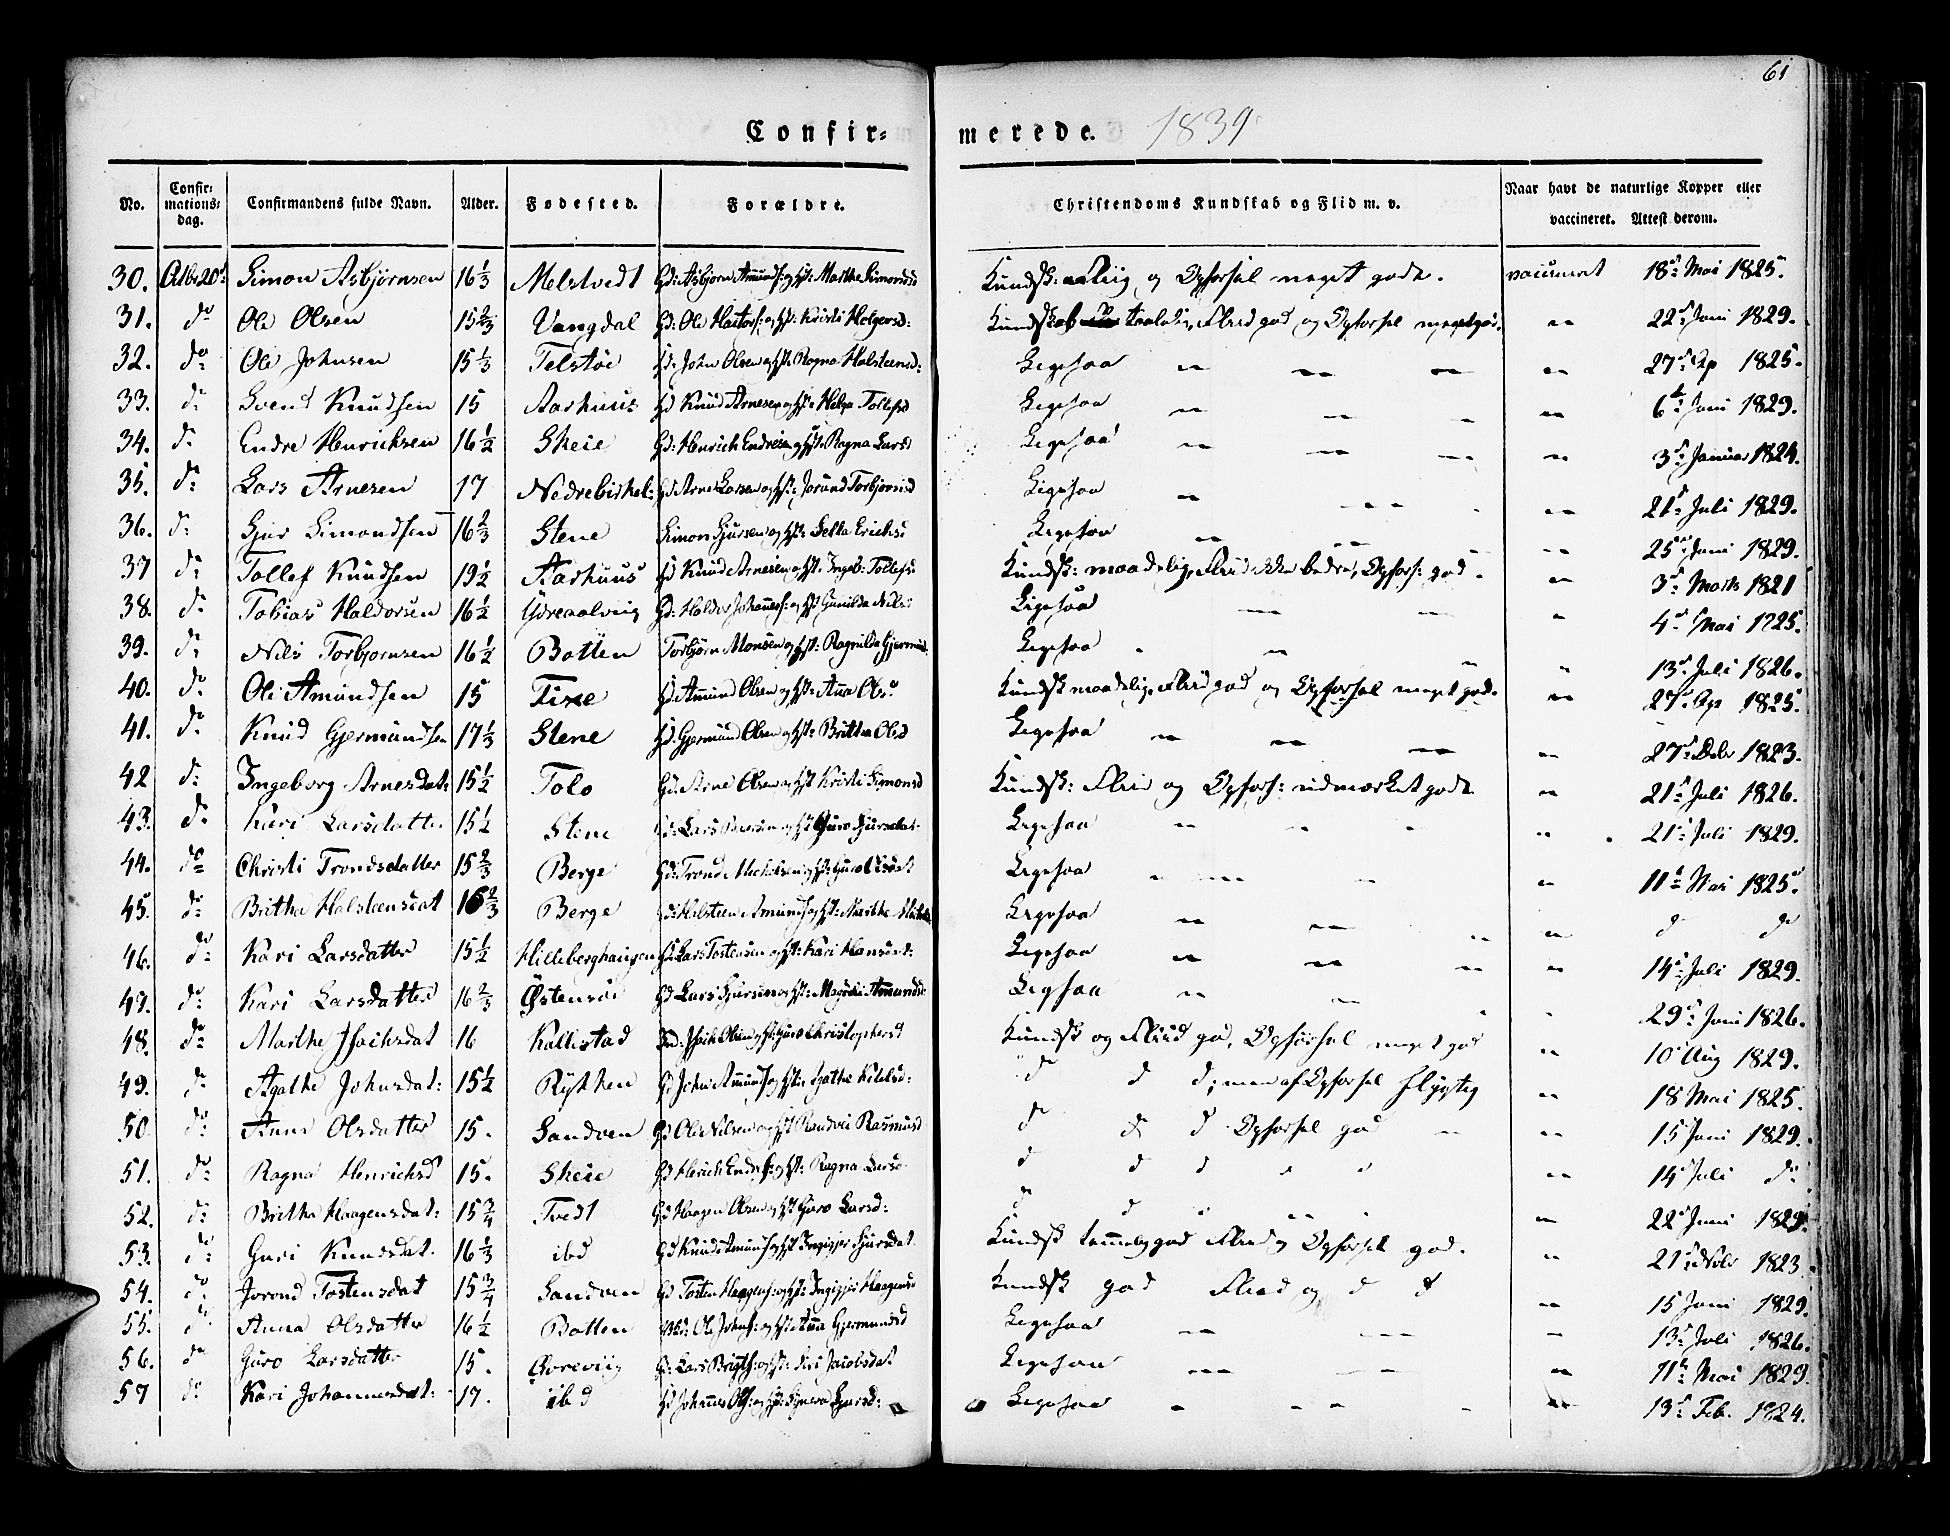 61
Confir=
merede. 1839
No.
Confir=
mations=
dag.
Confirmandens fulde Navn.
Alder.
Fødested.
Forældre.
Christendoms Kundskab og Flid m. v.
Naar havt de naturlige Kopper eller
vaccineret. Attest derom.
30. Simon Asbjørnsen 16 1/3 Melstvedt Gd: Asbjørn Amunds: og Hst: Marthe Simonsd Kundsk: Fliig og Opførsel meget gode. vaccineret 18d: Mai 1825.
31. do Ole Olsen 15 2/3 Vangdal Gd: Ole og Hst: Kristi Helgesd: Kundskab Flid god og Opførsel meget god. " 22d Juni 1829.
32. do Ole Johnsen 15 1/3 Telstøe Gd: John Olsen og Hst: Ragna Halsteensd: Ligesaa " " " " 27d: Ap 1825.
33. d: Svend Knudsen 15 Aarhuus Gd Knud Arnesen og Hst: Helga Tollefsd Ligesaa " " " " 6te Juni 1829.
34. d: Endre Henrichsen 16 1/2 Skeie Gd: Henrich Endresen og Hst: Ragna Larsd Ligesaa " " " " 3d: Januar 1824.
35. d: Lars Arnesen 17 Gd Arne Larsen og Hst: Jorund Torbjørnsd Ligesaa " " " 21d Juli 1829.
36. d: Sjur Simondsen 16 2/3 Stene Simon Sjursen og Hst: Erichsd Ligesaa " " " 25d: Juni 1829.
37 d: Tollef Knudsen 19 1/2 Aarhuus Gd Knud Arnesen og Hst. Ingeb: Tollefsd Kundsk: maadelig, Flid ikke bedre, Opførs: god. " 3d: Marts 1821
38. d: Tobias Haldorsen 16 1/2 Gd: Haldor Johannes: og Hst Gunilda Nilsd Ligesaa " " " 4d Mai 1825.
39. d: Nils Torbjørnsen 16 1/2 Botten Torbjørn Monsen og Hst: Ragnilda Gjermunds. Ligesaa " " " 13d Juli 1826.
40. d: Ole Amundsen 15 Fixe Gd: Amund Olsen og Hst: Anna Olsd Kundsk maadelig, Flid god og Opførsel meget god. " 27d. Apr 1825.
41. do Knud Gjermundsen 17 1/3 Stene Gd. Gjermund Olsen og Hst: Britha Olsd Ligesaa " " " " 27d Debr 1823.
42 d: Ingeborg Arnesdat: 15 1/2 Tolo Gd. Arne Olsen og Hst Kristi Simonsd Kundsk: Flid og Opførs: udmærket gode " 21d Juli 1826.
43. d: Kari Larsdatter 15 1/2 Stene Gd: Lars og Hst Guro Sjursdat. Ligesaa " " " " 21d: Juli 1829.
44. do Christi Trondsdatter 15 2/3 Berge Gd: Trond og Hst: Ligesaa " " " " 11te Mai 1825.
45. d: Britha Halsteensdat 16 2/3 Berge Gd: Helsteen Amunds og Hst: Marithe Ligesaa " " " " d do
46. do Kari Larsdatter 15 1/2 Hilleberghaugen Gd: Lars Tostensen og Hst: Kari Hansdat: Ligesaa " " " " 14d: Juli 1829.
47. d: Kari Larsdatter 16 2/3 Østensøe Gd Lars Sjursen og Hst: Amundsd: Ligesaa " " " 29d: Juni 1826.
48. do Marthe Isaiksdat 16 Kallestad Isaik Olsen og Hst: Guro Christophersd Kundsk og Fliid god, Opførsel meget god " 10d Aug 1829.
49. d: Agathe Johnsdat: 15 1/2 Rykken Gd John Amunds og Hst: Agathe d d d; men af Opførsel flygtig " 18 Mai 1825.
50 d: Anna Olsdatter 15. Sandven Gd Ole Nilsen og Hst Randvei Rasmusd d d d Opførsel god " " 15 Juni 1829.
51. d: Ragna Henrichsd 15. Skeie Gd Herich og Hst: Ragna Larsd d d d " " " 14d Juli do
52. d: Britha Haagensdat: 15 3/4 Tvedt Gd Haagen Olsen og Hst Guro Larsd: d d " " " 22d Juni 1829.
53. d: Guri Knudsdat. 16 1/3 ibd Gd Knud Amunds og Hst Ingigjer Sjursdat Kundsk god Flid og Opførsel god. " 21d Nobr 1823
54. do Jorond Tostensdat 15 3/4 Sandven Gd Tosten Haagens: og Hst: Ingigjer Haagensd Kundsk god Flid og d d " 15 Juni 1829.
55. d: Anna Olsdatter 16 1/2 Botten Ole Johns: og Hst: Anna Gjermundsd Ligesaa " " " 13d: Juli 1826.
56. do Guro Larsdatter 15. Lars og Hst: Siri Jacobsdat Ligesaa " " " 11te Mai 1829.
57 d: Kari Johannesdat: 17. ibd Gd Johannes Ols: og Hst: Ligesaa " " " " 13d: Feb. 1824.